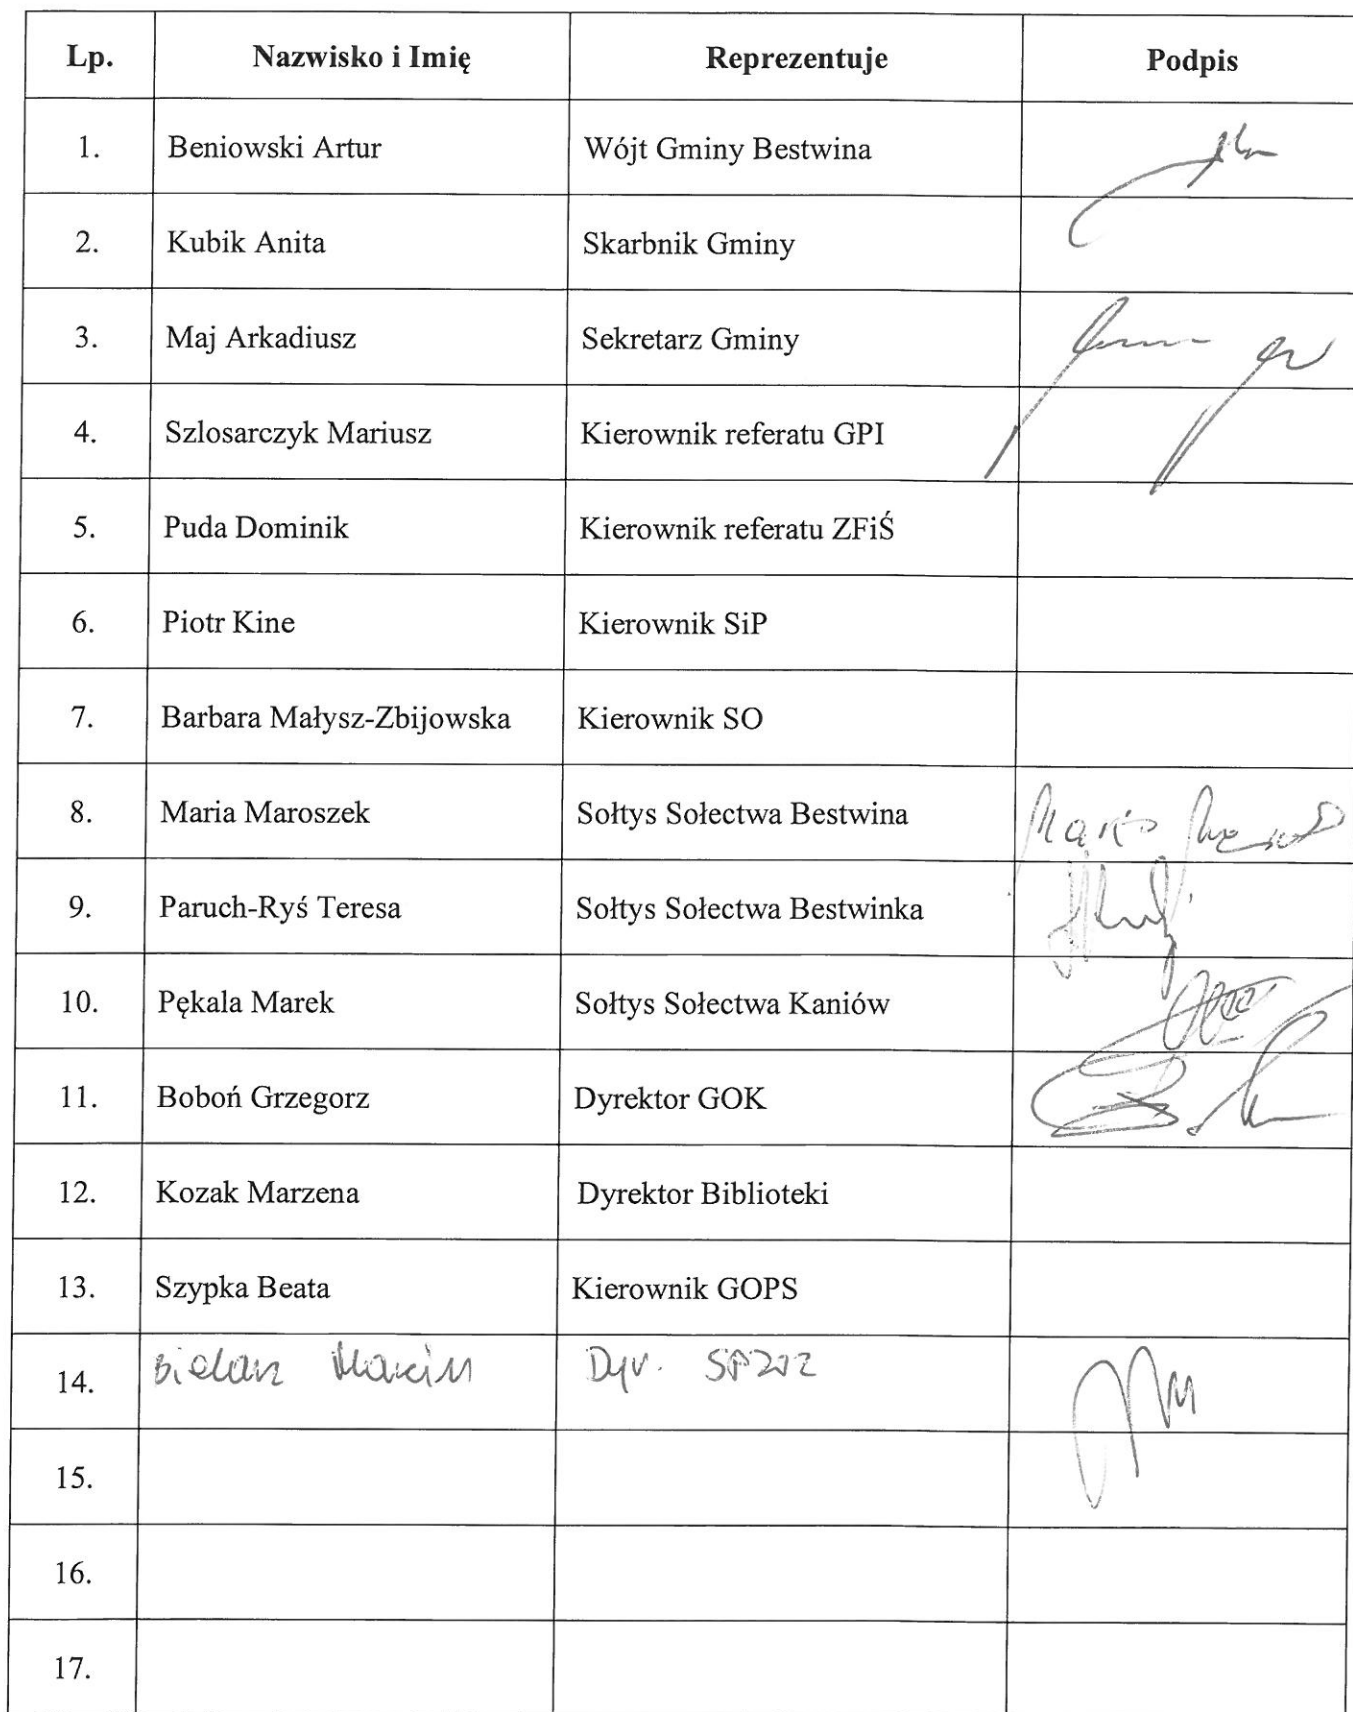 Lp. Nazwisko i Imię Reprezentuje Podpis
1. Beniowski Artur Wójt Gminy Bestwina
2. Kubik Anita Skarbnik Gminy
3. Maj Arkadiusz Sekretarz Gminy
4. Szlosarczyk Mariusz Kierownik referatu GPI
5. Puda Dominik Kierownik referatu ZFiŚ
6. Piotr Kine Kierownik SiP
7. Barbara Małysz-Zbijowska Kierownik SO
8. Maria Maroszek Sołtys Sołectwa Bestwina
9. Paruch-Ryś Teresa Sołtys Sołectwa Bestwinka
10. Pękala Marek Sołtys Sołectwa Kaniów
11. Boboń Grzegorz Dyrektor GOK
12. Kozak Marzena Dyrektor Biblioteki
13. Szypka Beata Kierownik GOPS
14. Bielarz Marcin Dyr. SPZOZ
15.
16.
17.